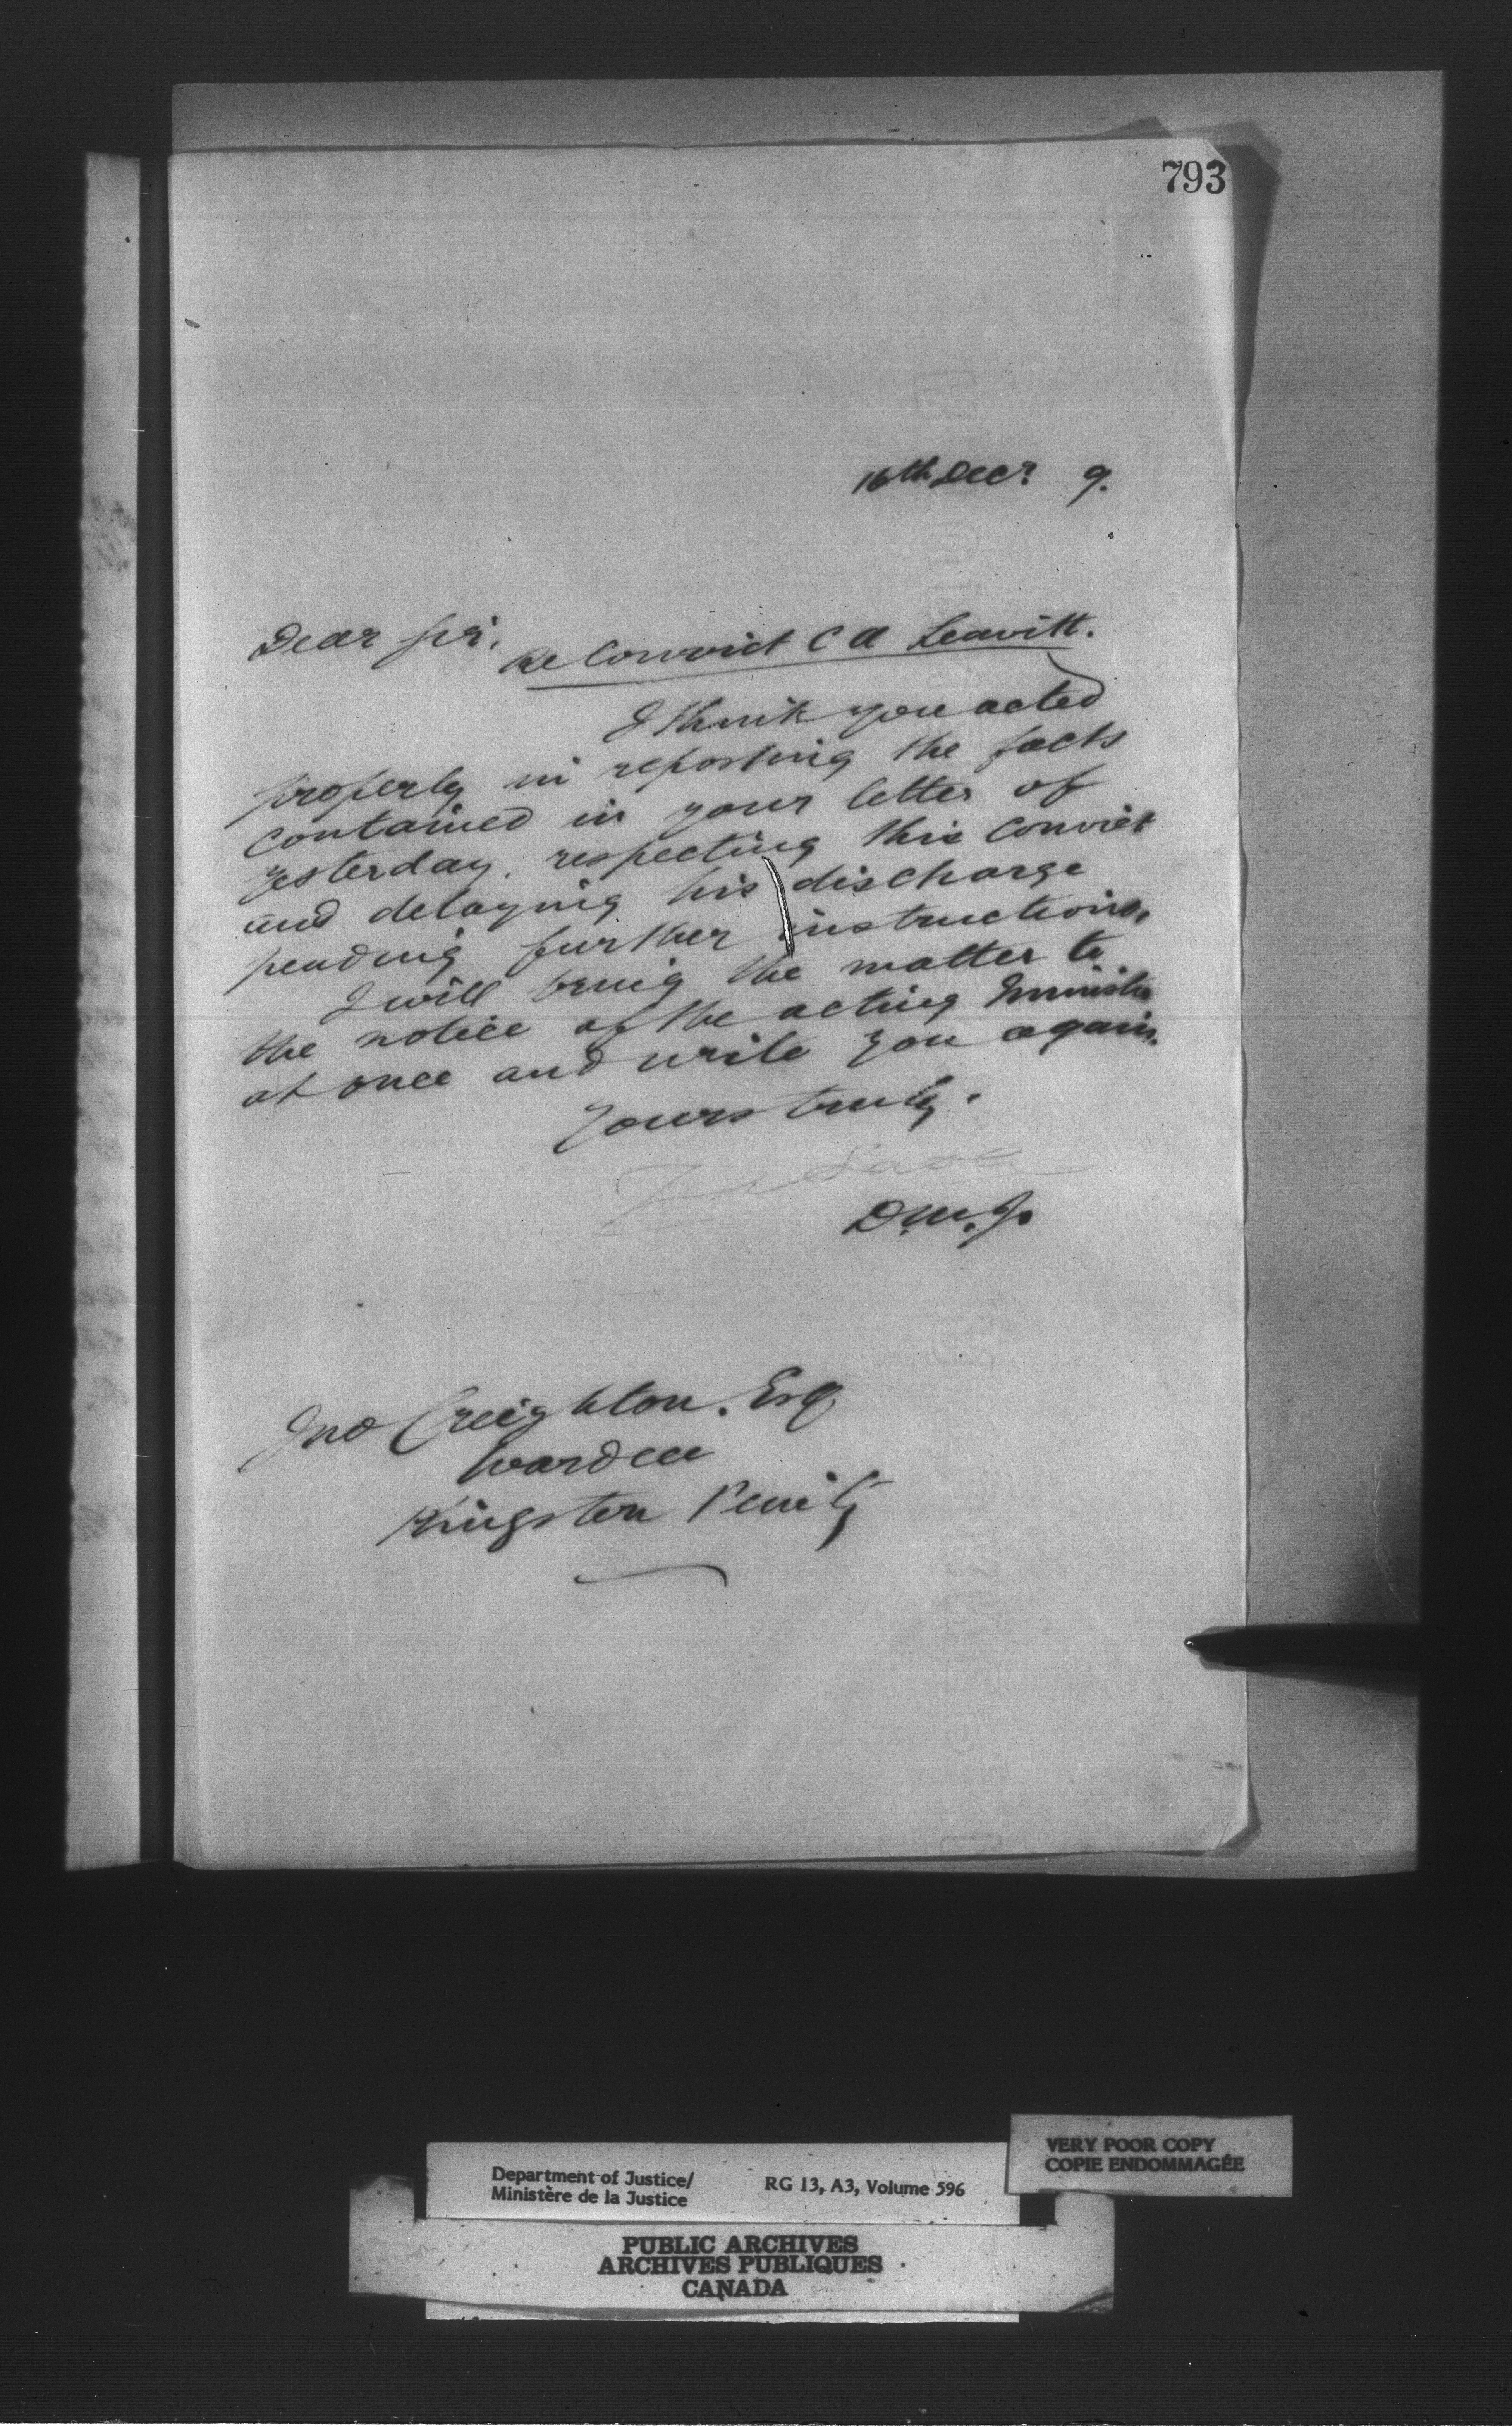 793
16th Decr 9.
Dear Sir,
Re Convict C A Leavitt.
I think you acted
properly in reporting the facts
contained in your letter of
yesterday, respecting this convict
and delaying his discharge
pending further instructions.
I will bring the matter to
the notice of the acting Minister
at once and write you again.
Yours truly.
D.M.J.
Jno Creighton. Esq
Warden
Kingston Penity
VERY POOR COPY
COPIE ENDOMMAGÉE
Department of Justice/ RG 13, A3, Volume 596
Ministère de la Justice
PUBLIC ARCHIVES
ARCHIVES PUBLIQUES
CANADA